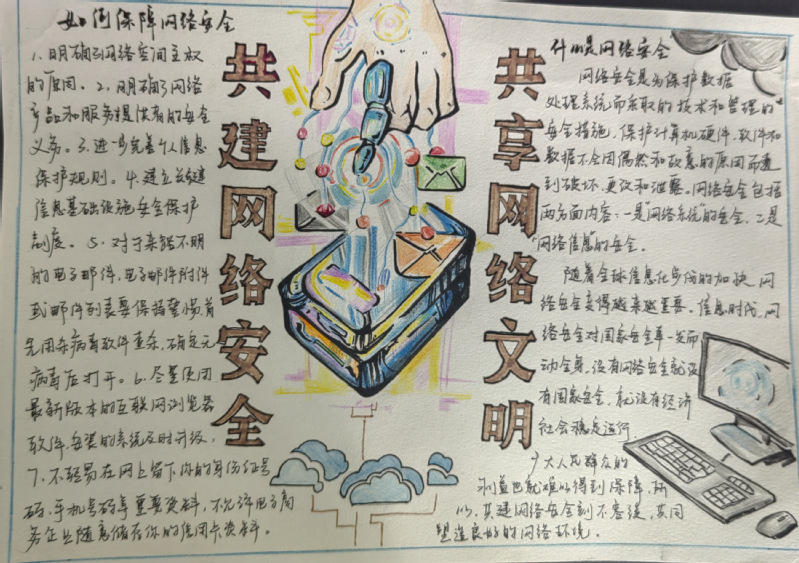 如何保障网络安全
1.明确了网络空间主权
的原因。2.明确了网络
产品和服务提供者的安全
义务。3.进一步完善个人信息
保护规则。4.建立关键
信息基础设施安全保护
制度。5.对于来路不明
的电子邮件,电子邮件附件
或邮件列表要保持警惕,首
先用杀病毒软件查杀,确定无
病毒后打开。6.尽量使用
最新版本的互联网浏览器
软件,安装的系统及时升级,
7.不轻易在网上留下你的身份证号
码,手机号码等重要资料,不允许电子商
务企业随意储存你的信用卡资料。
共建网络安全
共享网络文明
什么是网络安全
网络安全是为保护数据
处理系统而采取的技术和管理的
安全措施,保护计算机硬件,软件和
数据不会因偶然和故意的原因而遭
到破坏、更改和泄露。网络安全包括
两方面内容:一是"网络系统"的安全,二是
"网络信息"的安全。
随着全球信息化步伐的加快,网
络安全变得越来越重要。信息时代,网
络安全对国家安全牵一发而
动全身,没有网络安全就没
有国家安全,就没有经济
社会稳定运行
广大人民群众的
利益也就难以得到保障,所
以,共建网络安全刻不容缓,共同
塑造良好的网络环境。